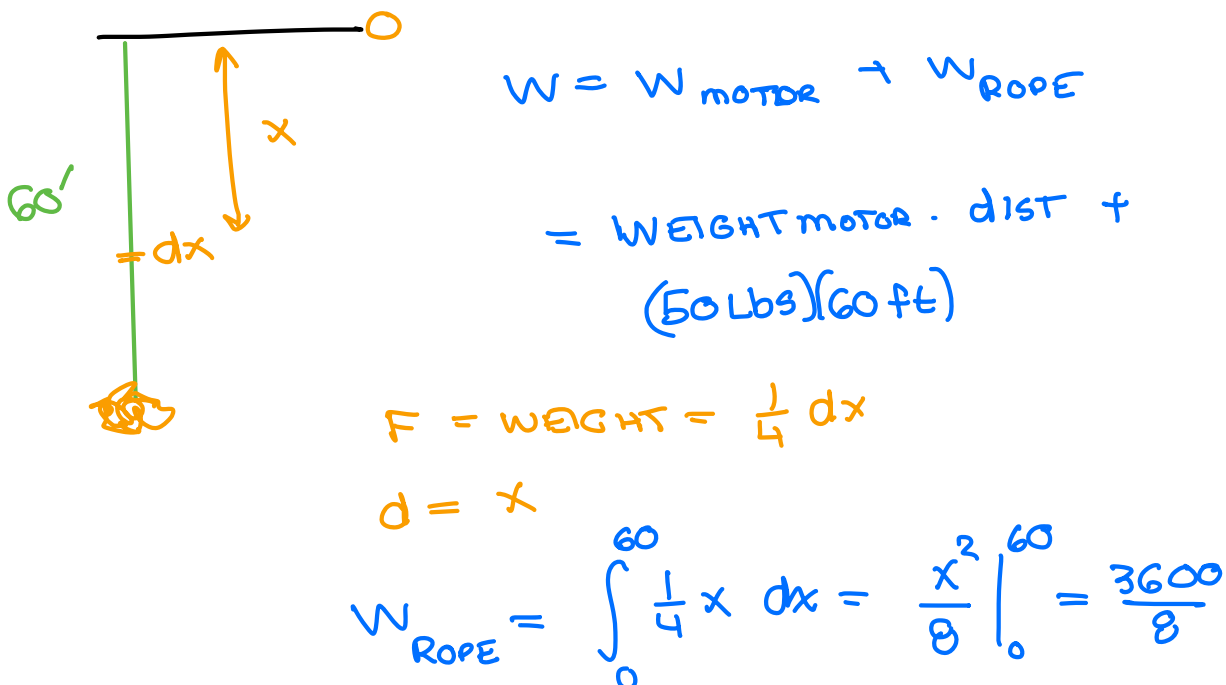 O
x
60'
= dx
W = W MOTOR + W ROPE
= WEIGHT MOTOR · dIST +
(50 Lbs)(60 ft)
F = WEIGHT = 1/4 dx
d = x
W ROPE = ∫₀⁶⁰ 1/4 x dx = x²/8 |₀⁶⁰ = 3600/8